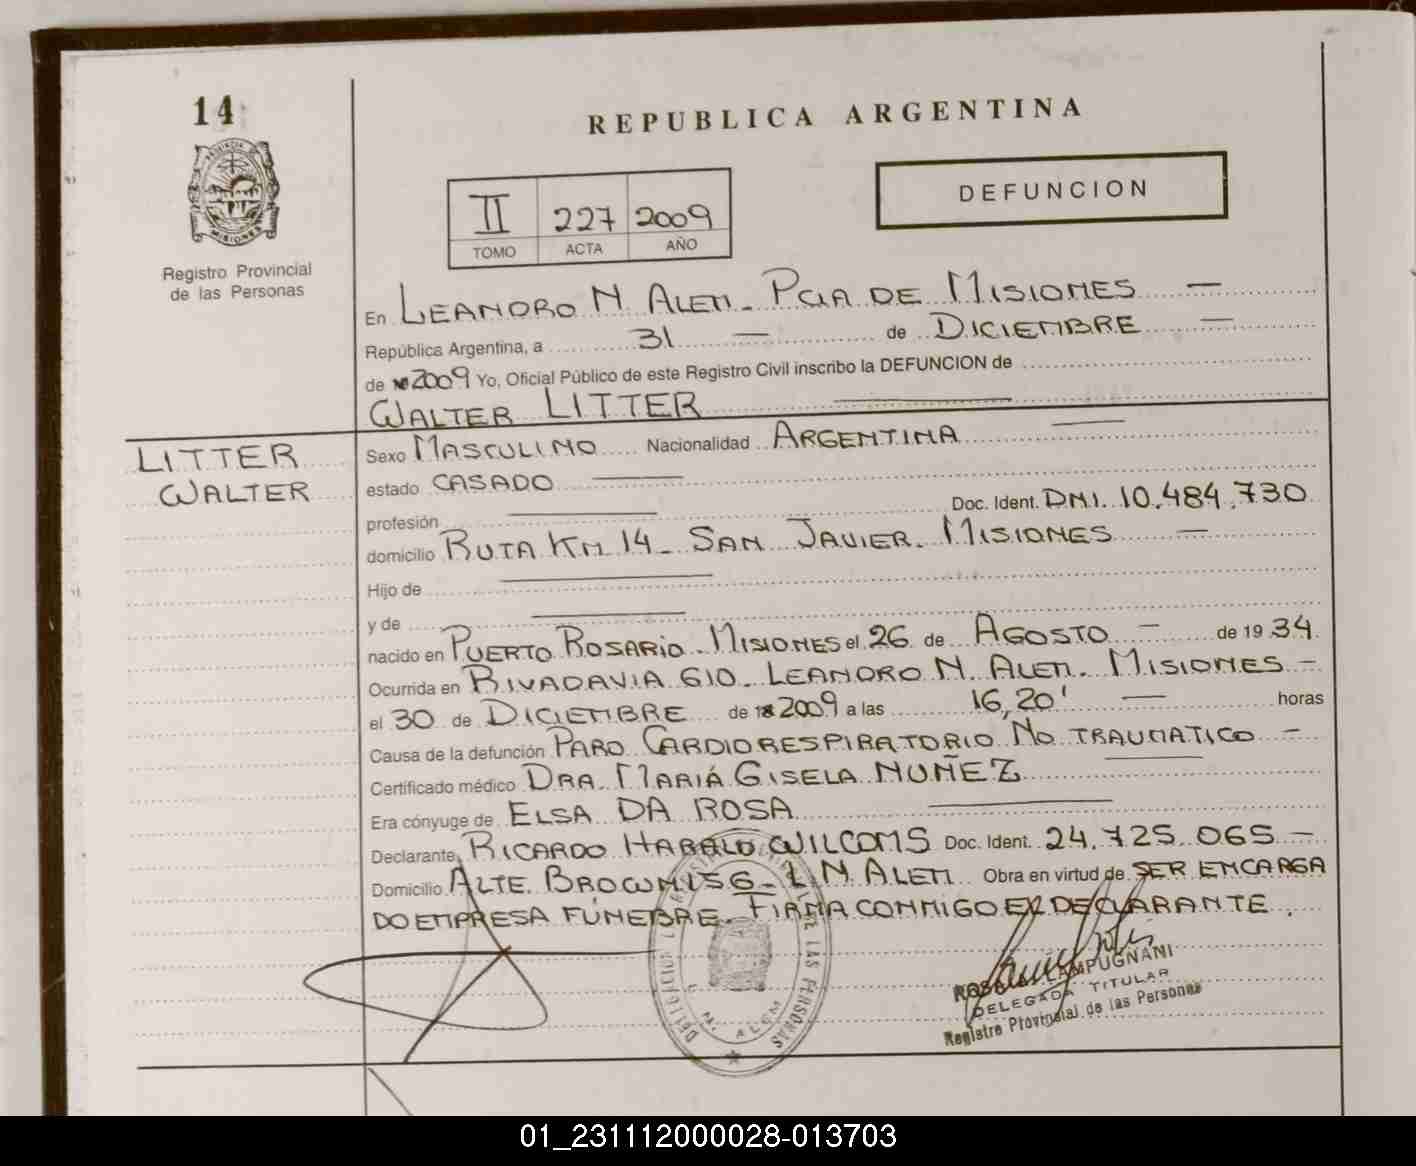 14
PROVINCIA DE
MISIONES
Registro Provincial
de las Personas
REPUBLICA ARGENTINA
DEFUNCION
II 227 2009
TOMO ACTA AÑO
En LEANDRO N. ALEM - PCIA DE MISIONES —
República Argentina, a 31 — de DICIEMBRE —
de 2009 Yo, Oficial Público de este Registro Civil inscribo la DEFUNCION de
WALTER LITTER —
LITTER
WALTER
Sexo MASCULINO Nacionalidad ARGENTINA —
estado CASADO —
profesión — Doc. Ident. DNI. 10.484.730
domicilio RUTA KM 14 - SAN JAVIER. MISIONES —
Hijo de —
y de —
nacido en PUERTO ROSARIO - MISIONES el 26 de AGOSTO — de 19 34
Ocurrida en RIVADAVIA 610 - LEANDRO N. ALEM - MISIONES —
el 30 de DICIEMBRE de 2009 a las 16,20' — horas
Causa de la defunción PARO CARDIORESPIRATORIO NO TRAUMATICO —
Certificado médico DRA. MARIÁ GISELA NUÑEZ —
Era cónyuge de ELSA DA ROSA —
Declarante RICARDO HARALD WILCOMS Doc. Ident. 24.725.065 —
Domicilio ALTE. BROWN 156 - L. N. ALEM Obra en virtud de SER ENCARGA
DO EMPRESA FÚNEBRE. FIRMA CONMIGO EL DECLARANTE.
DELEGACION REGISTRO PROVINCIAL DE LAS PERSONAS
L. N. ALEM
LAMPUGNANI
DELEGADA TITULAR
Registro Provincial de las Personas
01_231112000028-013703